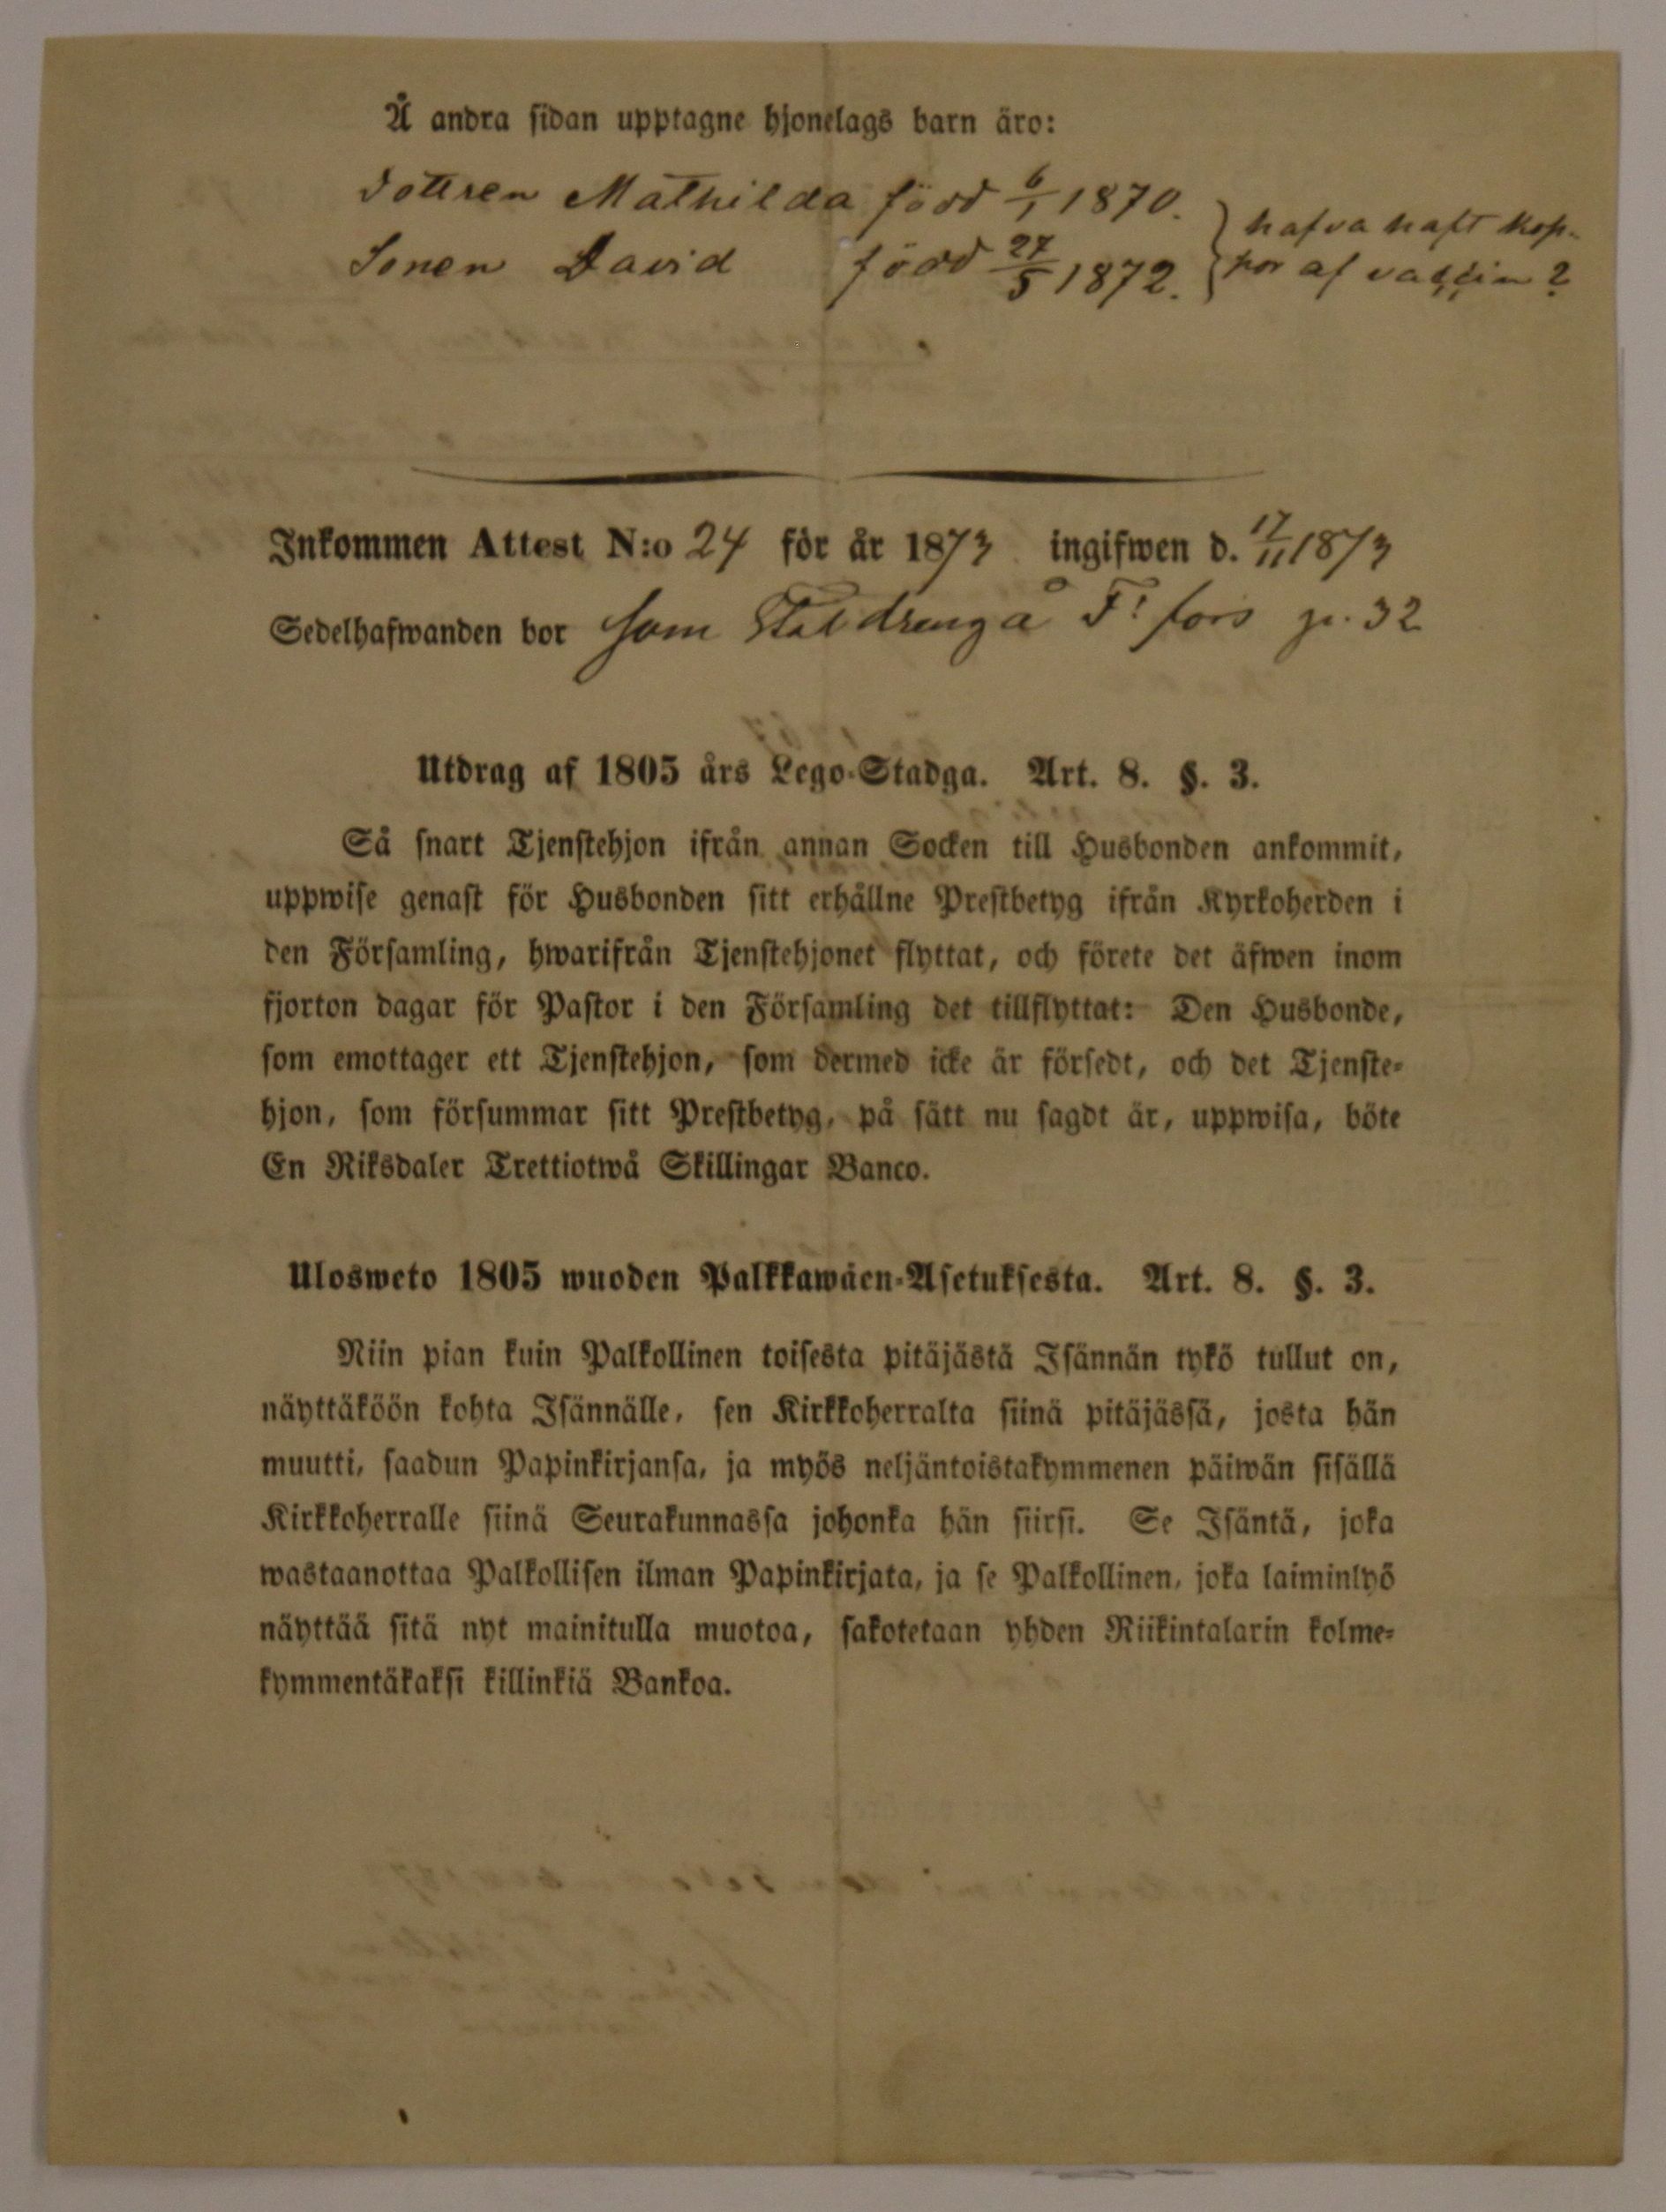 Å andra sidan upptagne hjonelags barn äro:
Dottren Mathilda född 6/1 1870.
Sonen David född 27/5 1872.
} hafva haft kop-
por af vaccin?
Inkommen Attest N:o 24 för år 1873 ingifwen d. 17/11 1873
Sedelhafwanden bor som Stalldreng å F:fors p. 32
Utdrag af 1805 års Lego-Stadga. Art. 8. §. 3.
Så snart Tjenstehjon ifrån annan Socken till Husbonden ankommit,
uppwise genast för Husbonden sitt erhållne Prestbetyg ifrån Kyrkoherden i
den Församling, hwarifrån Tjenstehjonet flyttat, och förete det äfwen inom
fjorton dagar för Pastor i den Församling det tillflyttat: Den Husbonde,
som emottager ett Tjenstehjon, som dermed icke är försedt, och det Tjenste-
hjon, som försummar sitt Prestbetyg, på sätt nu sagdt är, uppwisa, böte
En Riksdaler Trettiotwå Skillingar Banco.
Ulosweto 1805 wuoden Palkkawäen-Asetuksesta. Art. 8. §. 3.
Niin pian kuin Palkollinen toisesta pitäjästä Isännän tykö tullut on,
näyttäköön kohta Isännälle, sen Kirkkoherralta siinä pitäjässä, josta hän
muutti, saadun Papinkirjansa, ja myös neljäntoistakymmenen päiwän sisällä
Kirkkoherralle siinä Seurakunnassa johonka hän siirsi. Se Isäntä, joka
wastaanottaa Palkollisen ilman Papinkirjata, ja se Palkollinen, joka laiminlyö
näyttää sitä nyt mainitulla muotoa, sakotetaan yhden Riikintalarin kolme-
kymmentäkaksi killinkiä Bankoa.